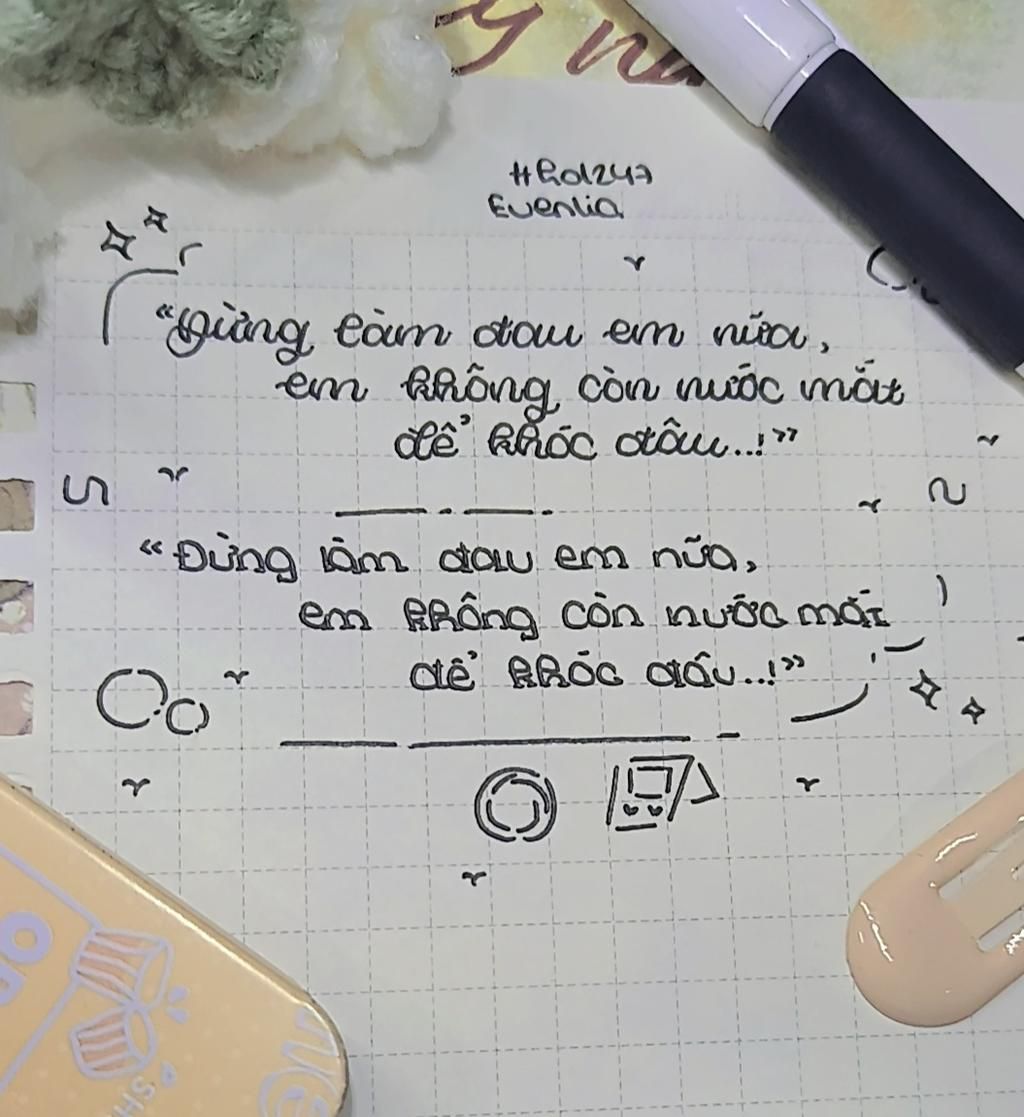 Evenlia
“Đừng làm đau em nữa,
em không còn nước mắt
để khóc đâu...!”
“Đừng làm đau em nữa,
em không còn nước mắt
để khóc đâu...!”